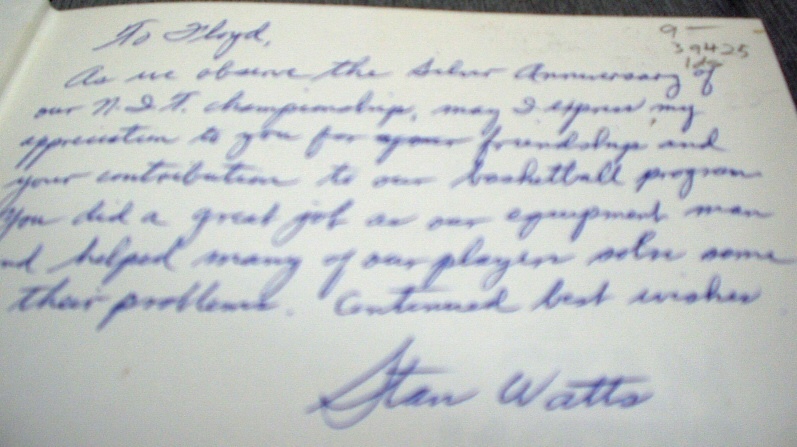 To Floyd,
9-
39425
As we observe the Silver Anniversary of
our N.I.T. championship, may I express my
appreciation to you for your friendship and
your contribution to our basketball program
You did a great job as our equipment man
nd helped many of our players solve some
their problems. Continued best wishes
Stan Watts